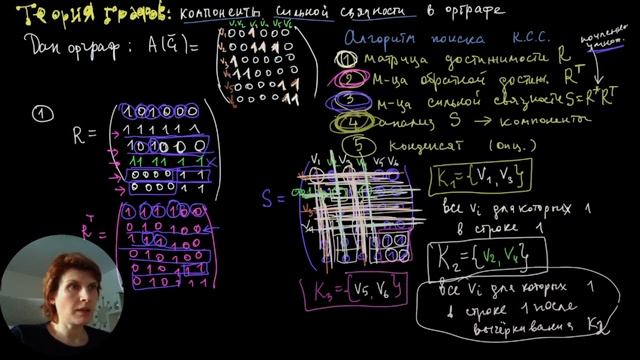 Теория графов: компоненты сильной связности в орграфе
Дан орграф: A(G⃗)=
V₁ V₂ V₃ V₄ V₅ V₆
Алгоритм поиска К.С.С.
① матрица достижимости R
② м-ца обратной достиж. Rᵀ
③ м-ца сильной связности S=R*Rᵀ
④ анализ S → компоненты
⑤ Конденсат (опц.)
①
R =
1 0 1 0 0 0
1 1 1 1 1 1
1 0 1 0 0 0
1 1 1 1 1 1
0 0 0 0 1 1
0 0 0 0 1 1
Rᵀ
1 1 1 1 0 0
0 1 0 1 0 0
1 1 1 1 0 0
0 1 0 1 0 0
0 1 0 1 1 1
0 1 0 1 1 1
S =
K₁={V₁, V₃}
все Vi для которых 1
в строке 1
K₂={V₂, V₄}
все Vi для которых 1
в строке 1 после
вычёркивания K₂
K₃={V₅, V₆}